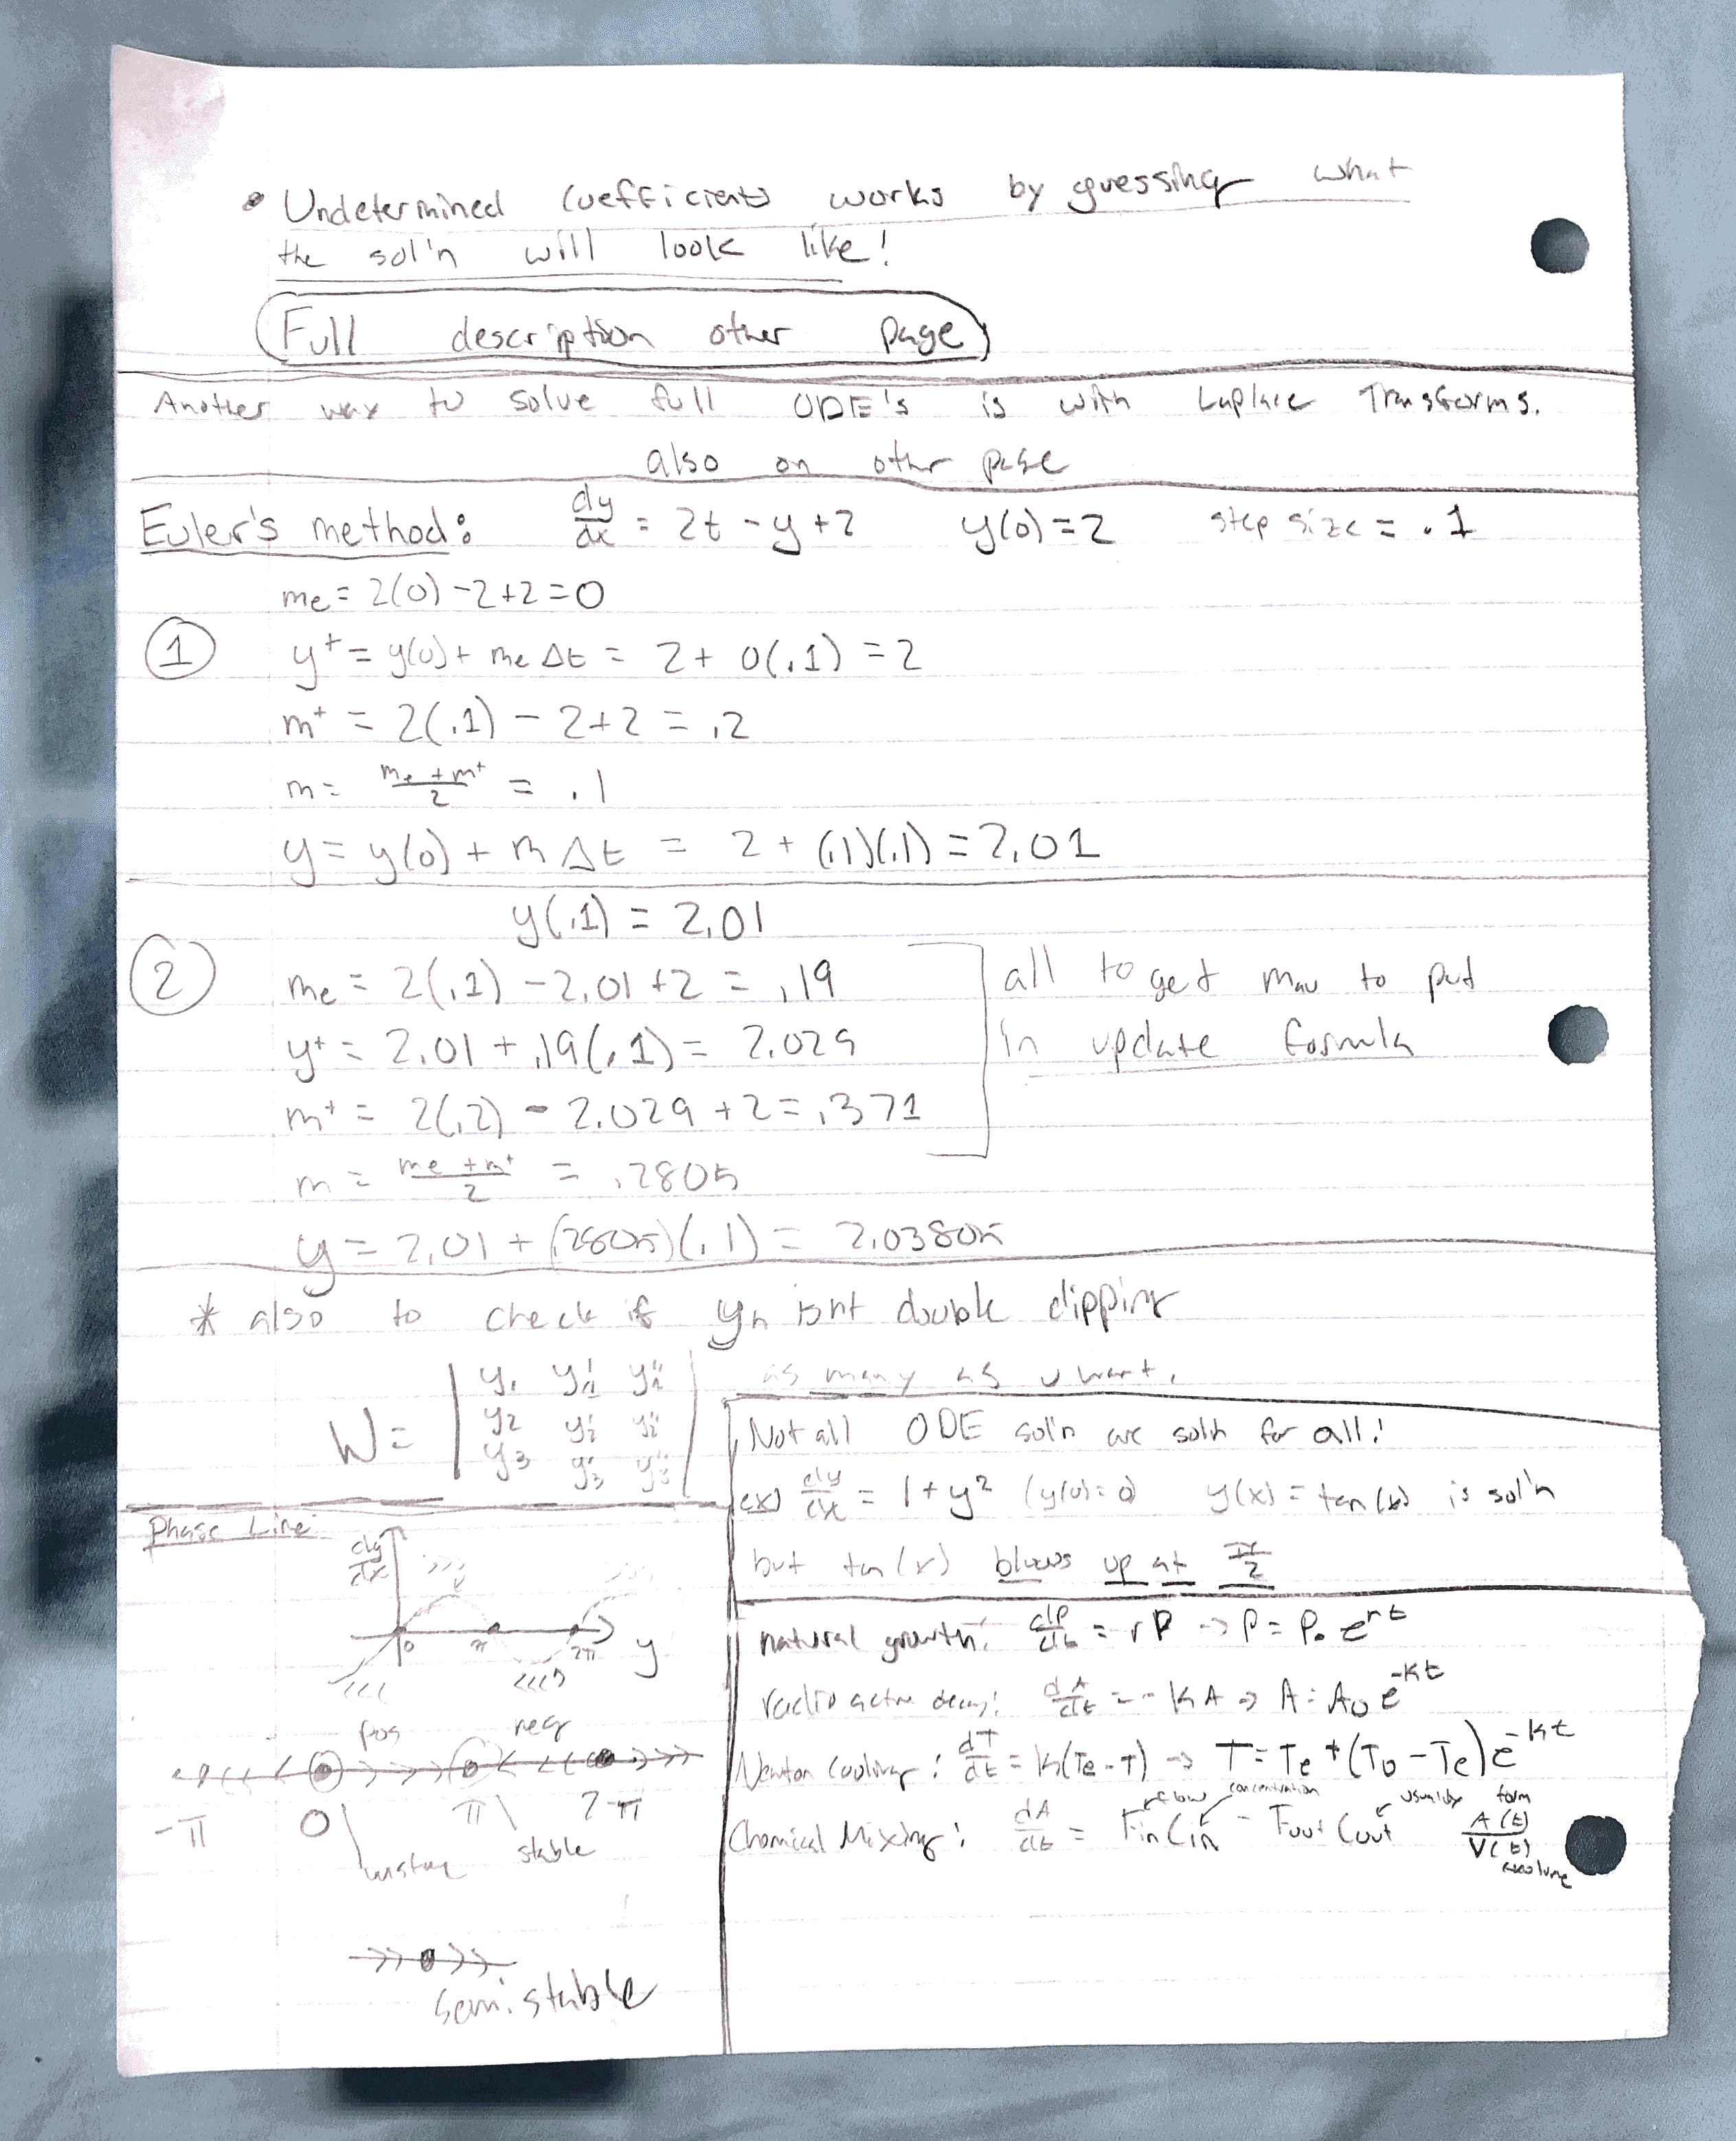 • Undetermined Coefficients works by guessing what
the sol'n will look like!
Full description other page
Another way to solve full ODE's is with Laplace Transforms.
also on other page
Euler's method: dy/dx = 2t - y + 2 y(0) = 2 step size = .1
me = 2(0) - 2 + 2 = 0
① y⁺ = y(0) + me Δt = 2 + 0(.1) = 2
m⁺ = 2(.1) - 2 + 2 = .2
m = (me + m⁺)/2 = .1
y = y(0) + m Δt = 2 + (.1)(.1) = 2.01
y(.1) = 2.01
② me = 2(.1) - 2.01 + 2 = .19
y⁺ = 2.01 + .19(.1) = 2.029
m⁺ = 2(.2) - 2.029 + 2 = .371
all to get mav to put
in update formula
m = (me + m⁺)/2 = .2805
y = 2.01 + (.2805)(.1) = 2.03805
* also to check if yn isnt double dipping
W = | y1 y1' y1'' |
| y2 y2' y2'' |
| y3 y3' y3'' |
as many as u want.
Not all ODE sol'n are soln for all!
ex) dy/dx = 1 + y² (y(0) = 0) y(x) = tan(x) is sol'n
but tan(x) blows up at π/2
Phase Line:
dy/dx
0 π 2π y
pos neg
-π 0 π 2π
stable
semi.stable
natural growth: dP/dt = rP → P = P₀ e^rt
radio active decay: dA/dt = -kA → A = A₀ e^-kt
Newton Cooling: dT/dt = k(Te - T) → T = Te + (T₀ - Te)e^-kt
flow concentration usually form
Chemical Mixing: dA/dt = Fin Cin - Fout Cout A(t)/V(t)
volume